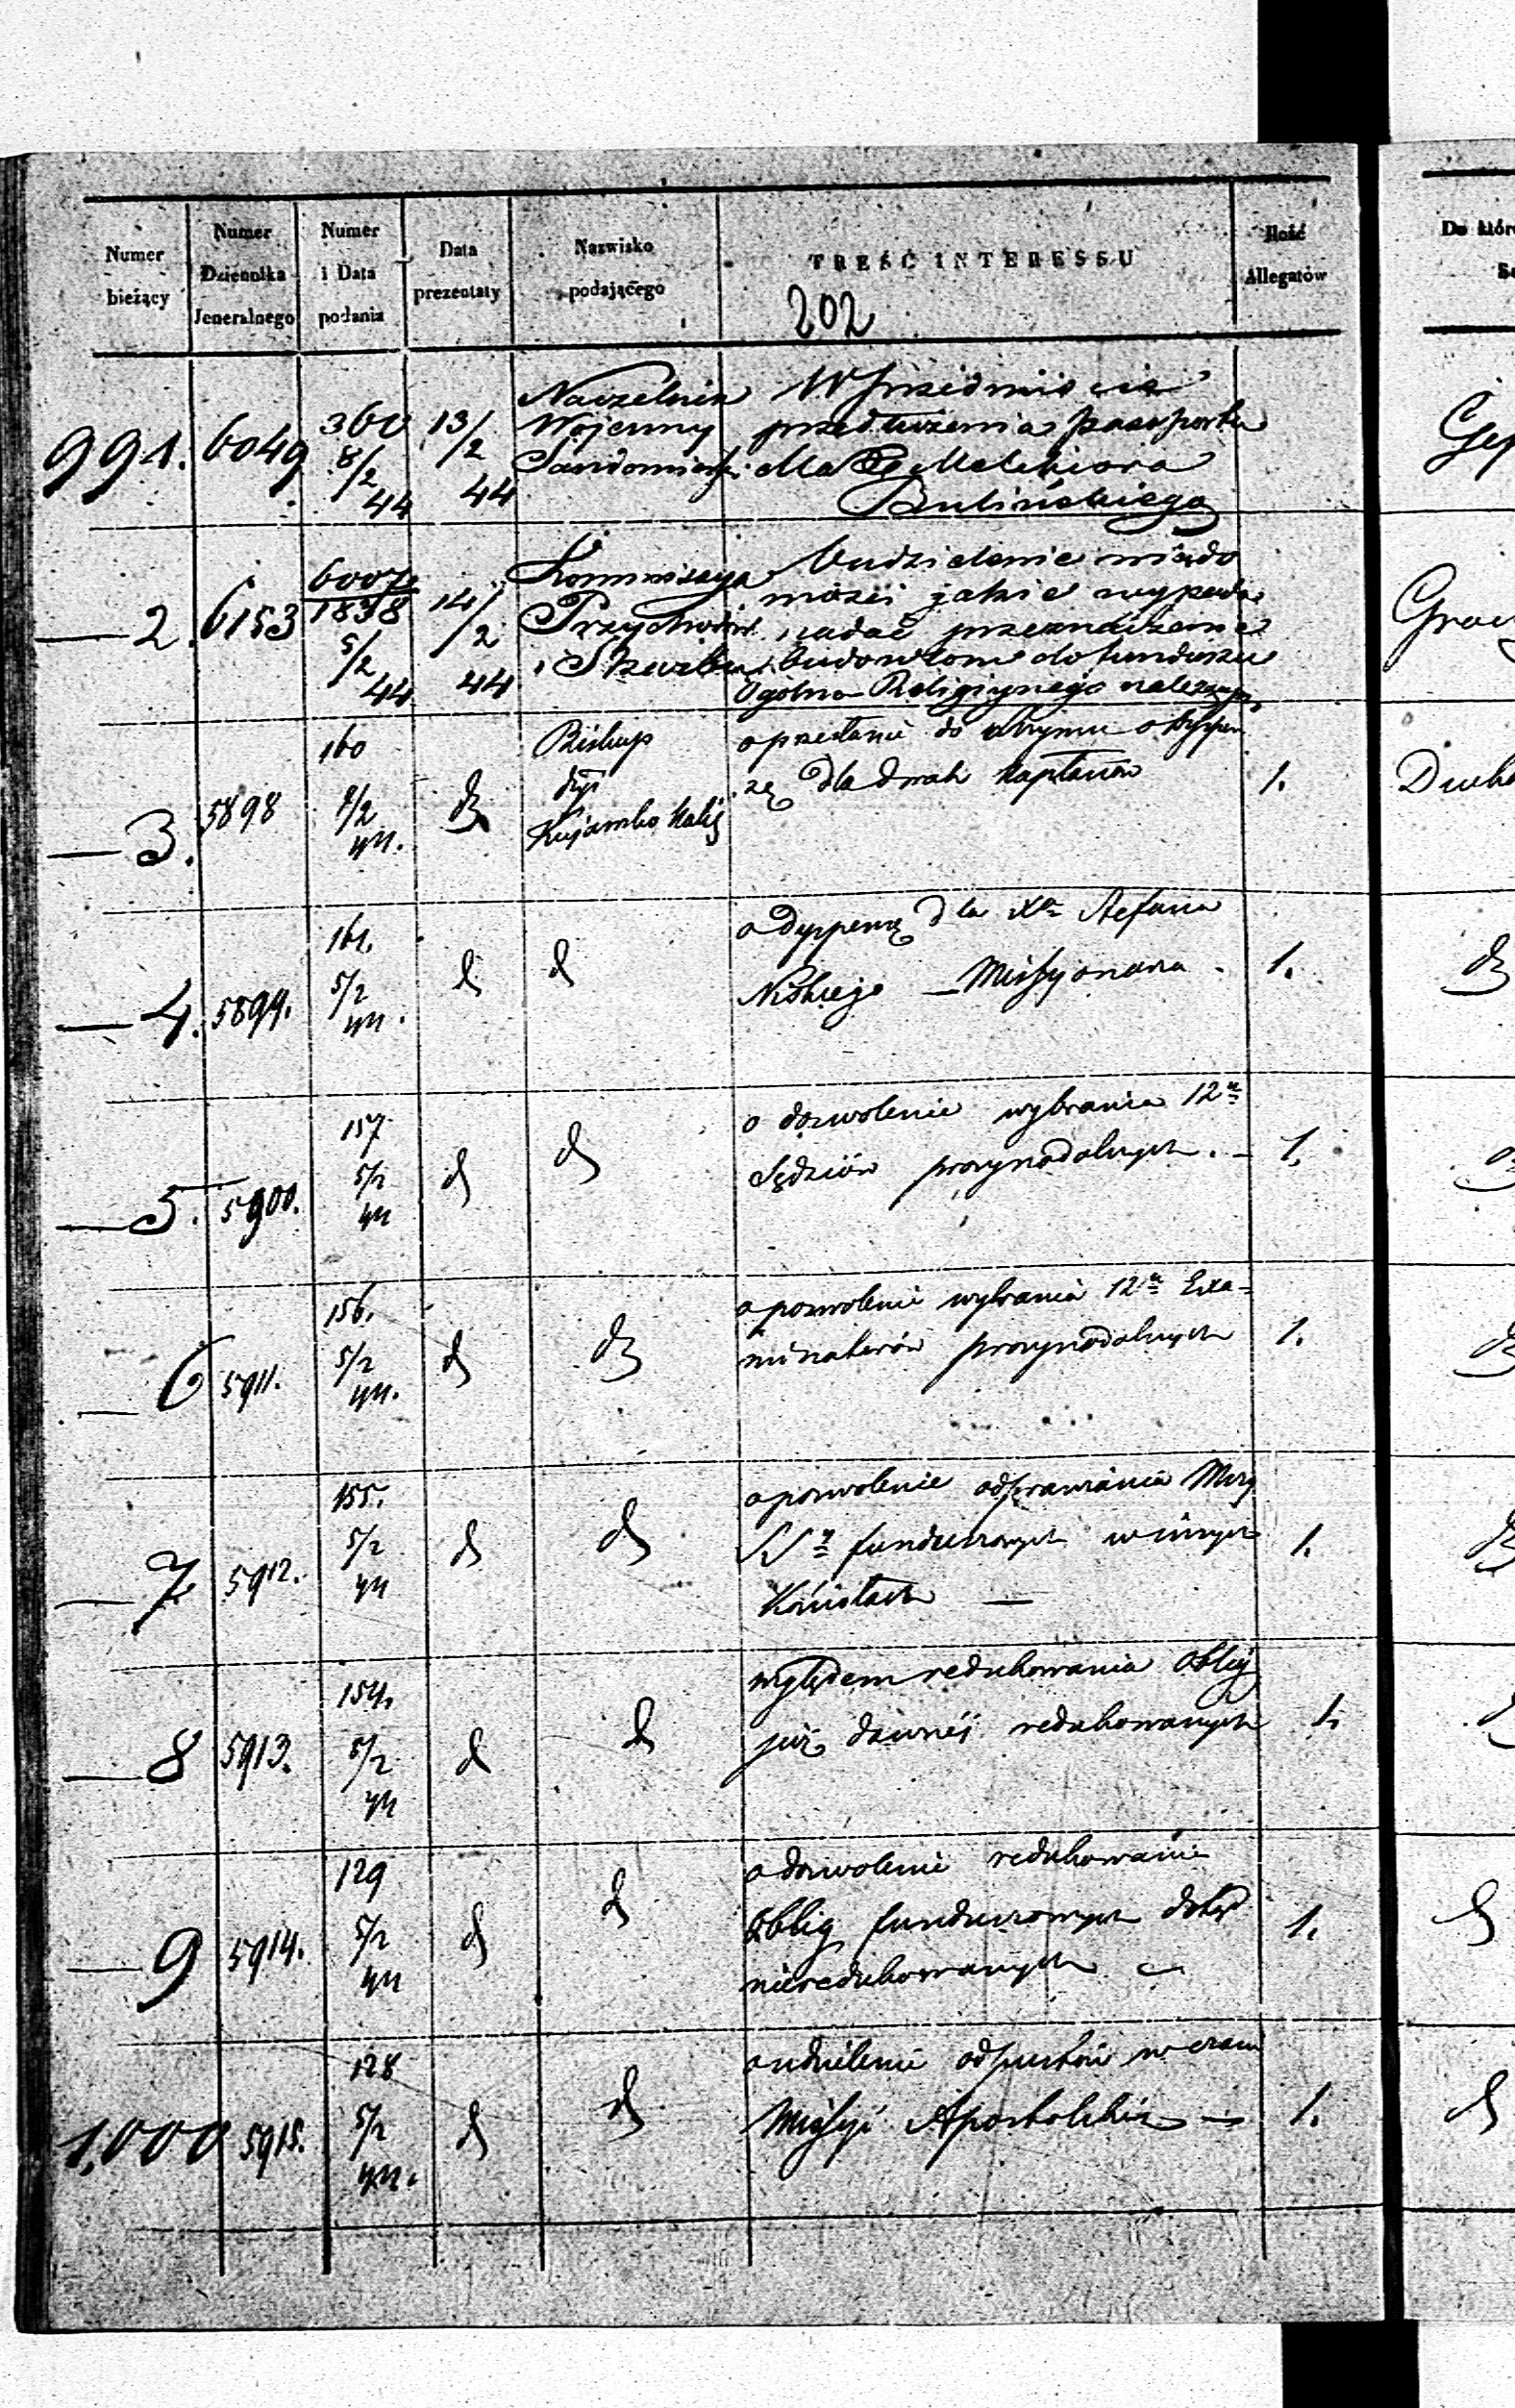 Numer bieżący
Numer Dziennika Jeneralnego
Numer i Data podania
Data prezentaty
Nazwisko podającego
TREŚĆ INTERESSU
Ilość Allegatów
202
991. 6049 360 8/2 44 13/2 44
Naczelnik Wojenny Sandomierski
W przedmiocie
przedłużenia paszportu
dla X Melchiora
Bulińskiego
2. 6153 6007/1838 5/2 44 14/2 44
Kommissya Przychodów i Skarbu
Udzielenie wiado
mości jakie
nadać przeznaczenie
budowlom do funduszu
Ogólno Religijnego
3. 5898 160 8/2 44.
Biskup
Dyj
Kujawsko Kalis
o przesłanie do Rzymu o dyspen
zę dla dwóch kapłanów
1.
4. 5899. 161. 5/2 44.
o dyspensę dla Xa Stefana
Missyonarza
1.
5. 5900. 157 5/2 44
o dozwolenie wybrania 12u
Sędziów prosynodalnych.
1.
6 5911. 156. 5/2 44.
o pozwolenie wybrania 12u Exa-
minatorów prosynodalnych
1.
7 5912. 155. 5/2 44
o pozwolenie odprawiania Mszy
SSch funduszowych w innych
Kościołach
1.
8 5913. 154. 5/2 44
względem redukowania oblig
już dawniej redukowanych
1.
9 5914. 129 5/2 44
o dozwolenie redukowania
oblig funduszowych dotąd
nieredukowanych
1.
1,000 5915. 128 5/2 44.
o udzielenie odpustów w czasie
Missyi Apostolskiej
1.